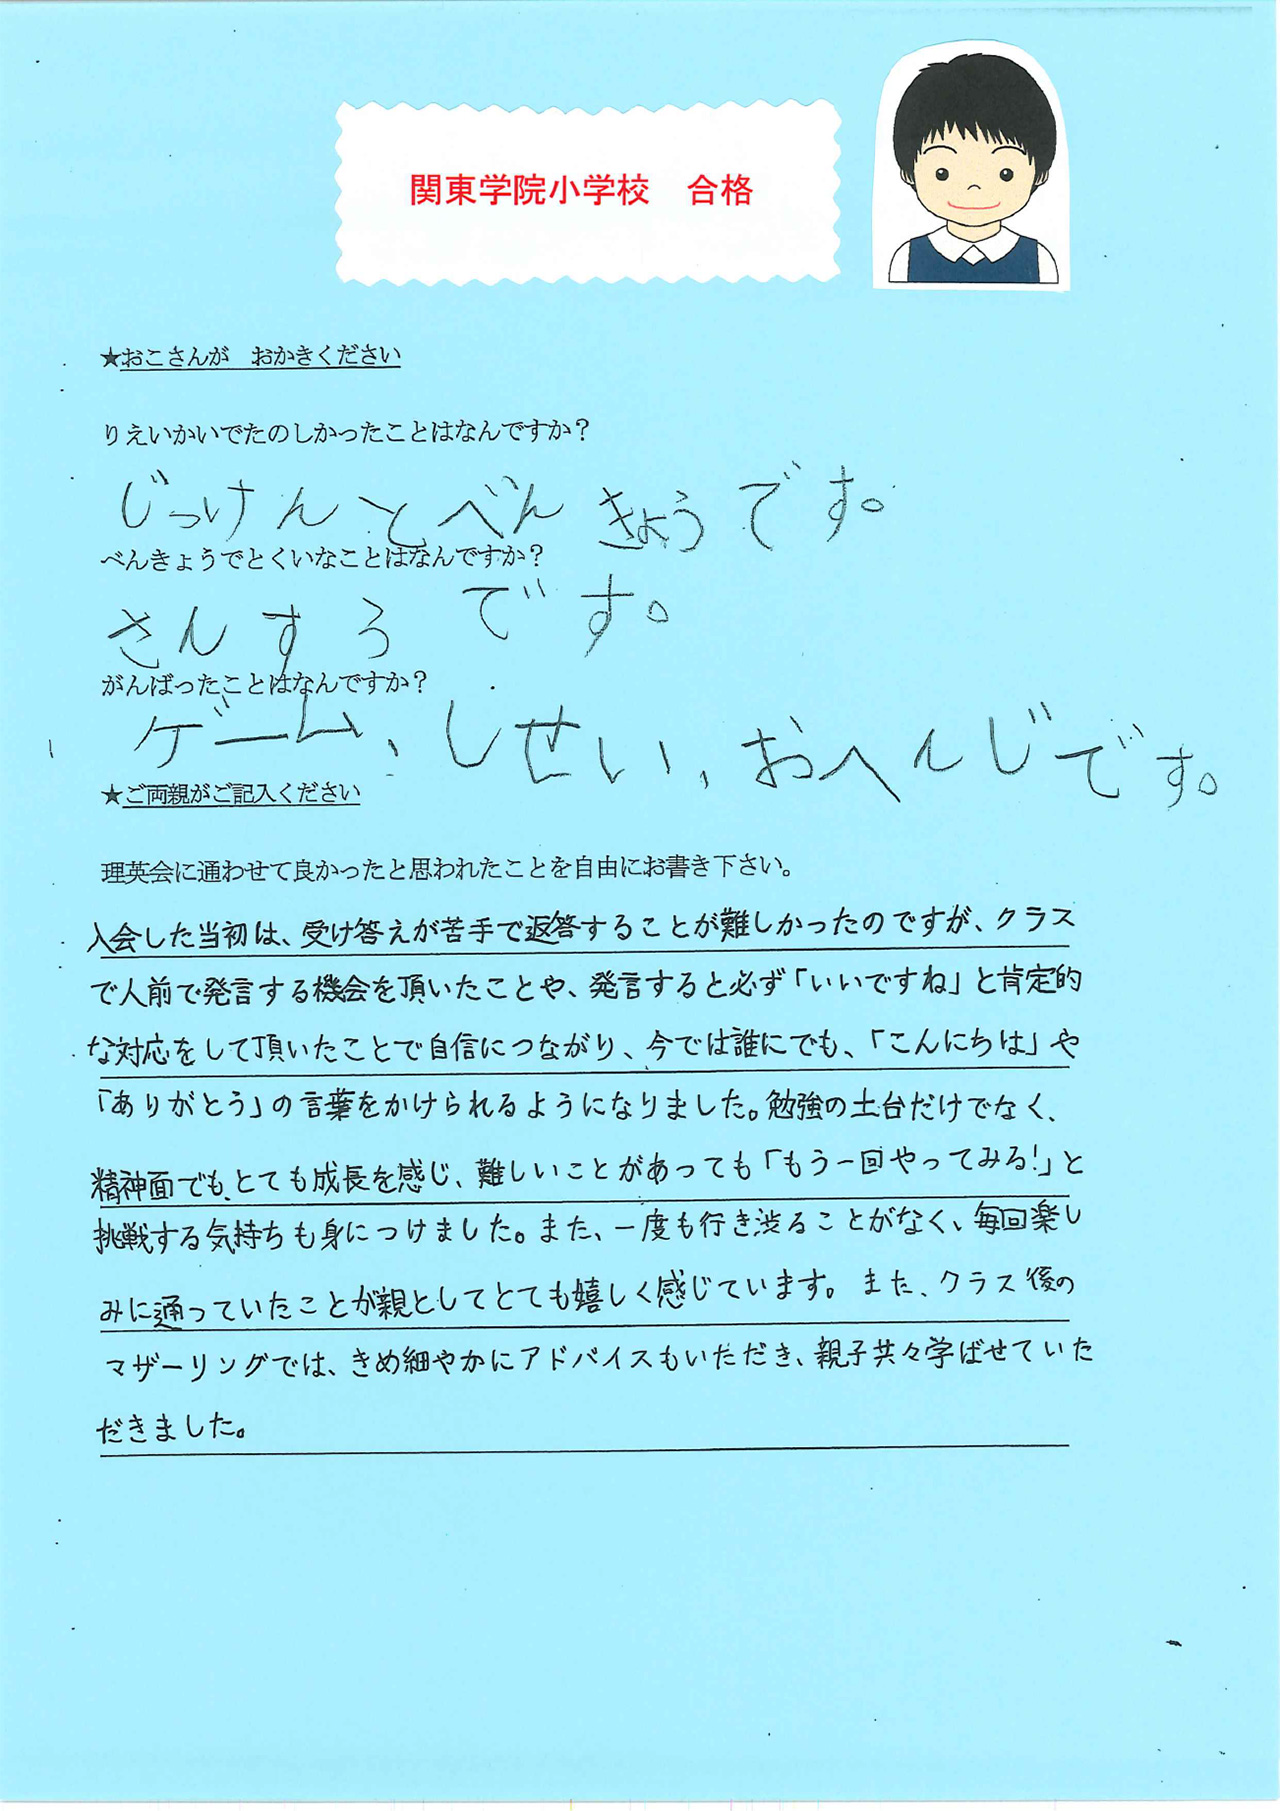 関東学院小学校　合格
★おこさんが　おかきください
りえいかいでたのしかったことはなんですか？
じっけんとべんきょうです。
べんきょうでとくいなことはなんですか？
さんすうです。
がんばったことはなんですか？
ゲーム、しせい、おへんじです。
★ご両親がご記入ください
理英会に通わせて良かったと思われたことを自由にお書き下さい。
入会した当初は、受け答えが苦手で返答することが難しかったのですが、クラス
で人前で発言する機会を頂いたことや、発言すると必ず「いいですね」と肯定的
な対応をして頂いたことで自信につながり、今では誰にでも、「こんにちは」や
「ありがとう」の言葉をかけられるようになりました。勉強の土台だけでなく、
精神面でも、とても成長を感じ、難しいことがあっても「もう一回やってみる！」と
挑戦する気持ちも身につけました。また、一度も行き渋ることがなく、毎回楽し
みに通っていたことが親としてとても嬉しく感じています。また、クラス後の
マザーリングでは、きめ細やかにアドバイスもいただき、親子共々学ばせていた
だきました。